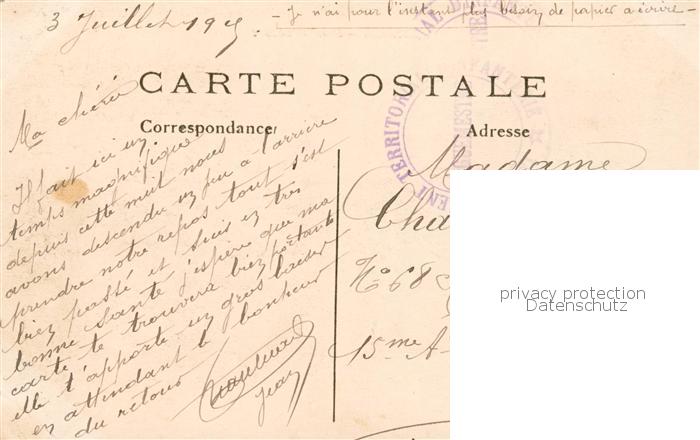 3 Juillet 1915
- Je n'ai pour l'instant plus besoin de papier a écrire -
CARTE POSTALE
Correspondance
Adresse
Ma chérie
Il fait ici un
temps magnifique
depuis cette nuit nous
avons descendu un peu a l'arrière
prendre notre repos tout s'est
bien passé et suis en très
bonne santé j'espère que ma
carte te trouvera bien portante
elle t'apporte un gros baiser
en attendant le bonheur
du retour
Jean
Madame
Cha
No 68
15me A
TERRITOR
privacy protection
Datenschutz